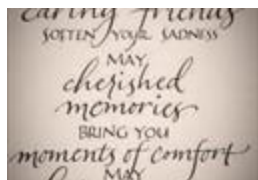 caring friends
SOFTEN YOUR SADNESS
MAY
cherished
memories
BRING YOU
moments of comfort
MAY